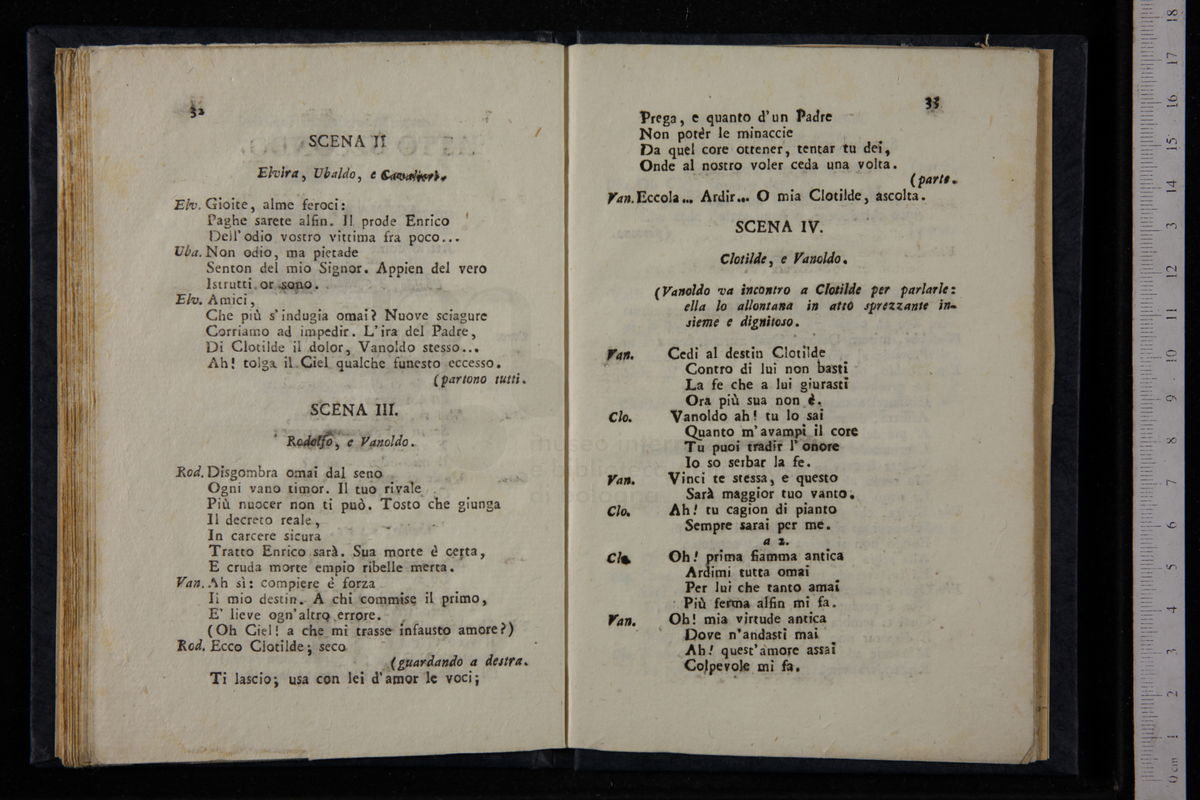 32
SCENA II
Elvira, Ubaldo, e Cavalieri.
Elv. Gioite, alme feroci:
Paghe sarete alfin. Il prode Enrico
Dell' odio vostro vittima fra poco...
Uba. Non odio, ma pietade
Senton del mio Signor. Appien del vero
Istrutti or sono.
Elv. Amici,
Che più s'indugia omai? Nuove sciagure
Corriamo ad impedir. L'ira del Padre,
Di Clotilde il dolor, Vanoldo stesso...
Ah! tolga il Ciel qualche funesto eccesso.
(partono tutti.
SCENA III.
Rodolfo, e Vanoldo.
Rod. Disgombra omai dal seno
Ogni vano timor. Il tuo rivale
Più nuocer non ti può. Tosto che giunga
Il decreto reale,
In carcere sicura
Tratto Enrico sarà. Sua morte è certa,
E cruda morte empio ribelle merta.
Van. Ah sì: compiere è forza
Il mio destin. A chi commise il primo,
E' lieve ogn'altro errore.
(Oh Ciel! a che mi trasse infausto amore?)
Rod. Ecco Clotilde; seco
(guardando a destra.
Ti lascio; usa con lei d'amor le voci;
33
Prega, e quanto d'un Padre
Non potèr le minaccie
Da quel core ottener, tentar tu dei,
Onde al nostro voler ceda una volta.
(parte.
Van. Eccola... Ardir... O mia Clotilde, ascolta.
SCENA IV.
Clotilde, e Vanoldo.
(Vanoldo va incontro a Clotilde per parlarle:
ella lo allontana in atto sprezzante in-
sieme e dignitoso.
Van. Cedi al destin Clotilde
Contro di lui non basti
La fe che a lui giurasti
Ora più sua non è.
Clo. Vanoldo ah! tu lo sai
Quanto m'avampi il core
Tu puoi tradir l'onore
Io so serbar la fe.
Van. Vinci te stessa, e questo
Sarà maggior tuo vanto.
Clo. Ah! tu cagion di pianto
Sempre sarai per me.
a 2.
Clo. Oh! prima fiamma antica
Ardimi tutta omai
Per lui che tanto amai
Più ferma alfin mi fa.
Van. Oh! mia virtude antica
Dove n'andasti mai
Ah! quest'amore assai
Colpevole mi fa.
0 cm 1 2 3 4 5 6 7 8 9 10 11 12 13 14 15 16 17 18